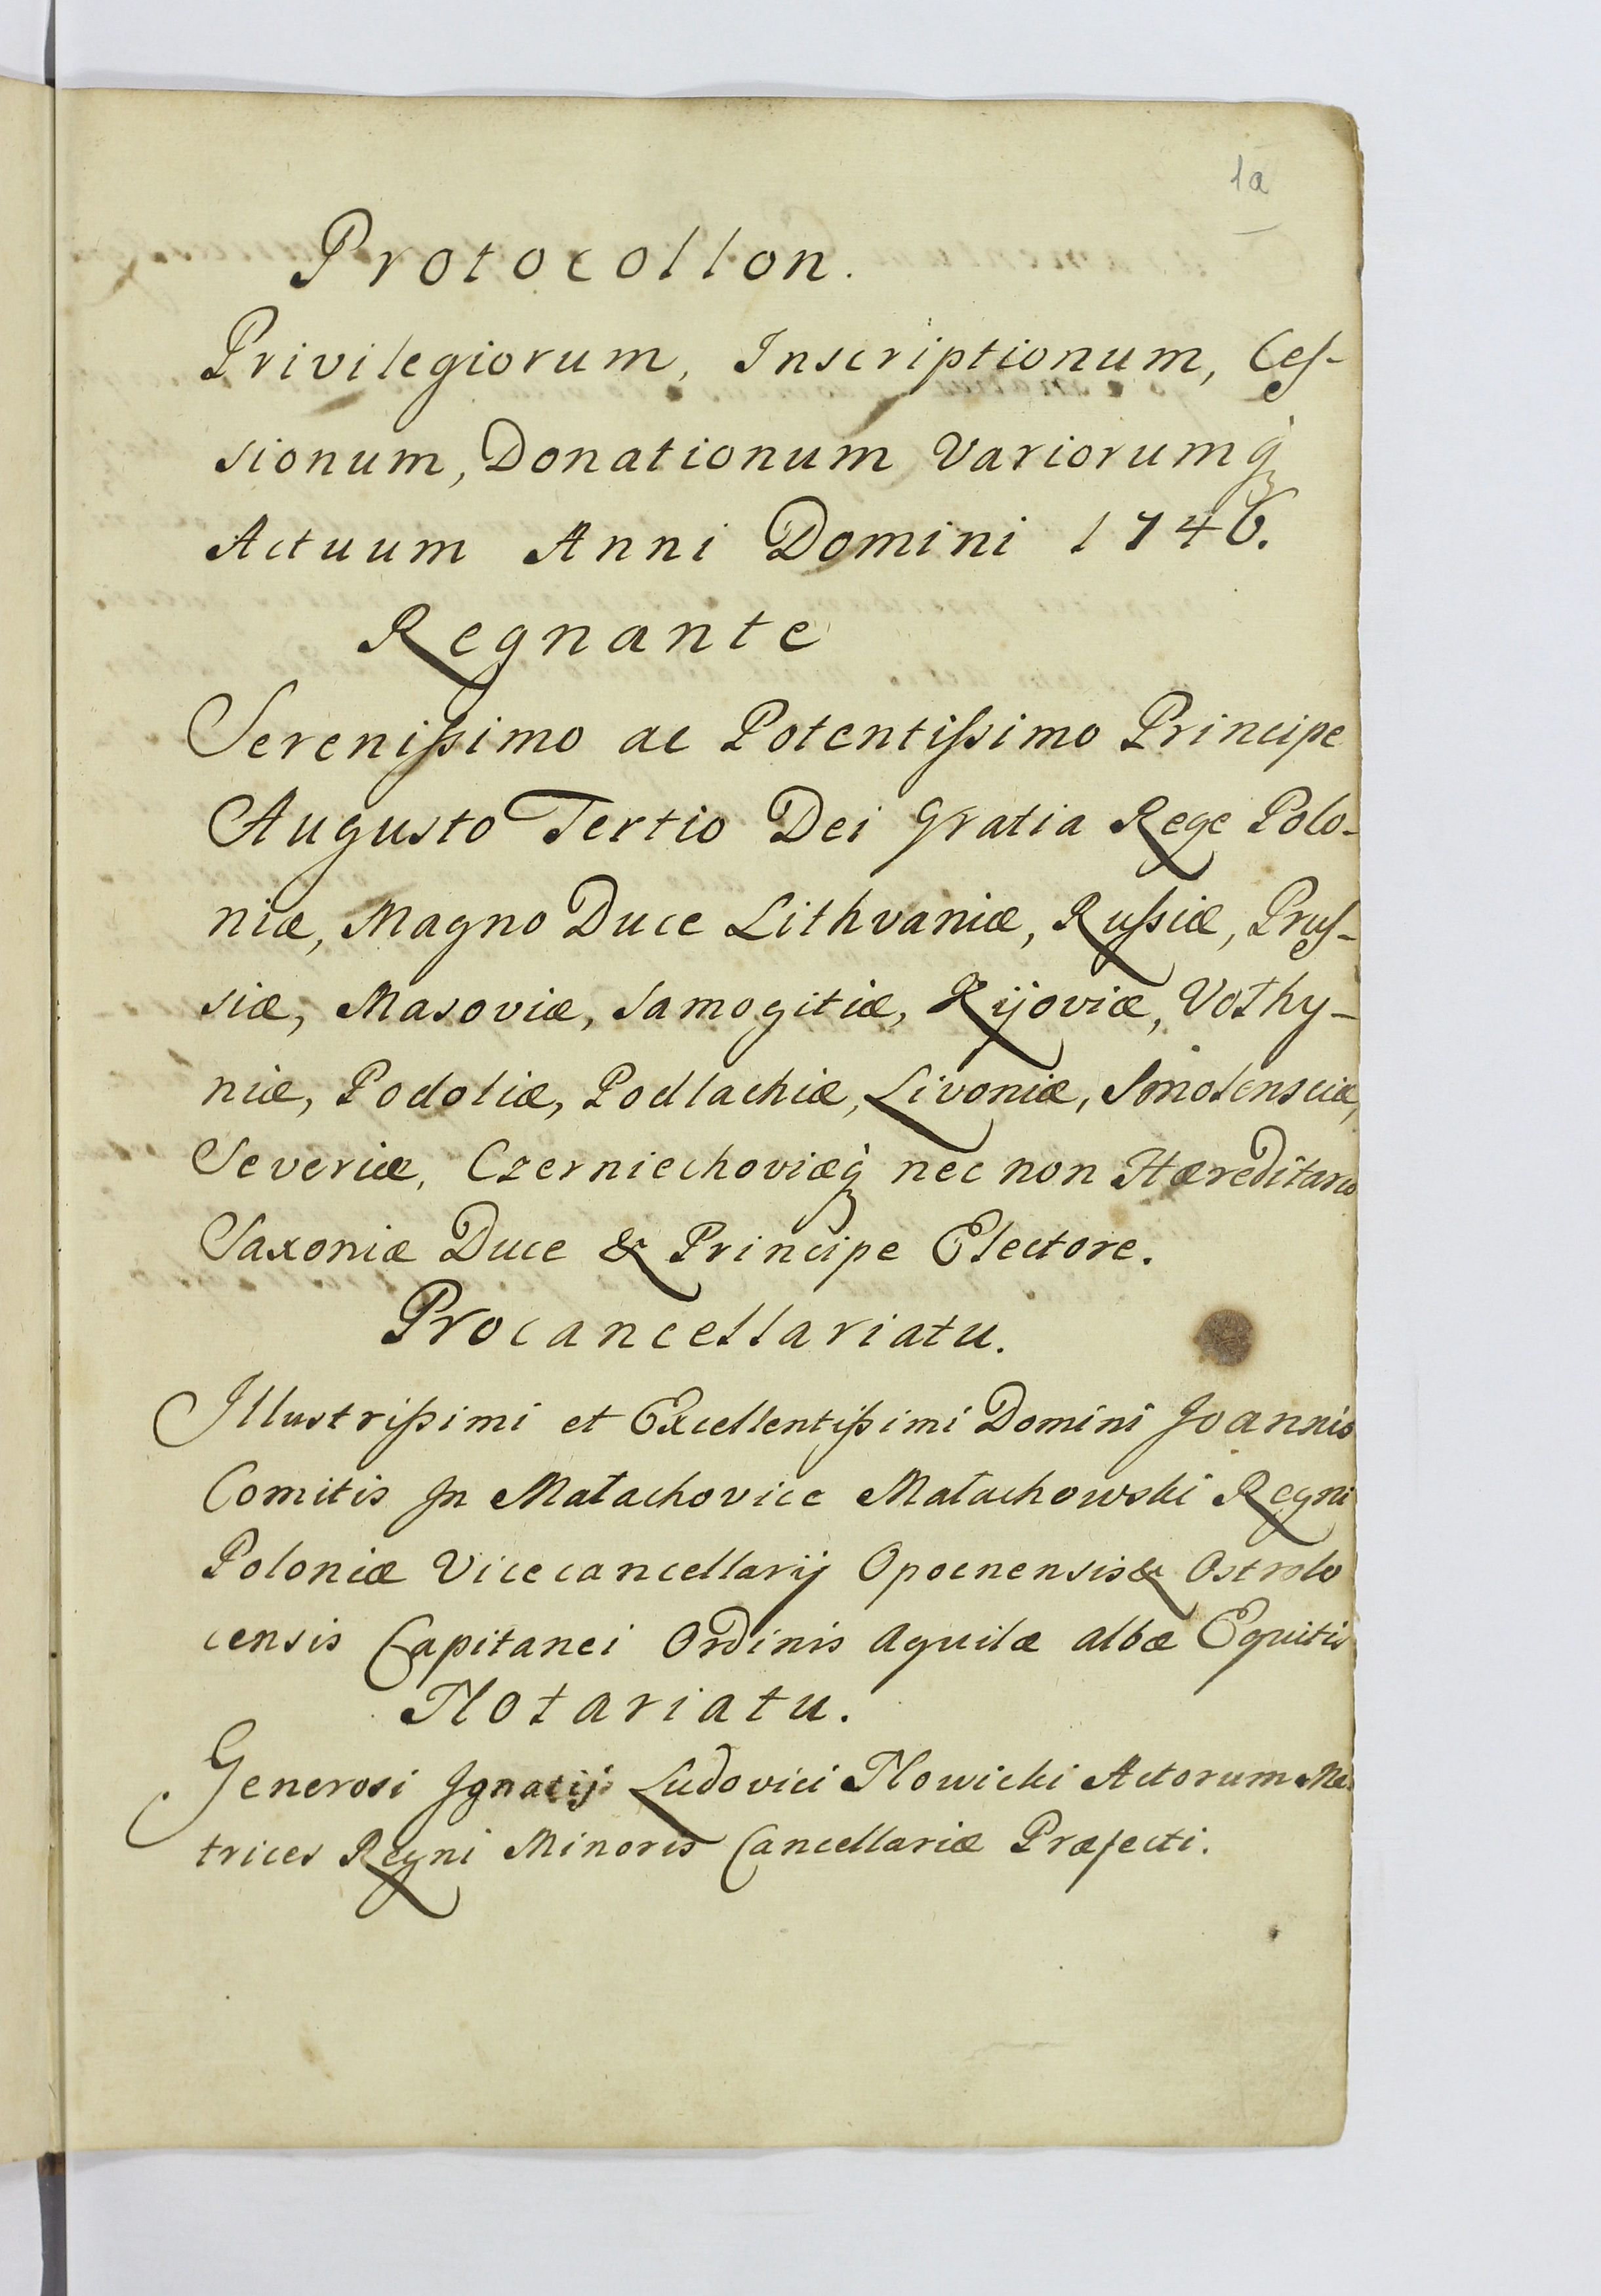 1a
Protocollon.
Privilegiorum, Inscriptionum, Ces-
sionum, Donationum Variorumq́
Actuum Anni Domini 1746.
Regnante
Serenissimo ac Potentissimo Principe
Augusto Tertio Dei Gratia Rege Polo-
niæ, Magno Duce Lithvaniæ, Russiæ, Prus-
siæ, Masoviæ, Samogitiæ, Kijoviæ, Vołhy-
niæ, Podoliæ, Podlachiæ, Livoniæ, Smolensciæ,
Severiæ, Czerniechoviæq́ nec non Hæreditario
Saxoniæ Duce & Principe Electore.
Procancellariatu.
Illustrissimi et Excellentissimi Domini Joannis
Comitis In Małachovice Małachowski Regni
Poloniæ Vicecancellarij Opocnensis & Ostrolo
censis Capitanei Ordinis Aquilæ albæ Equitis
Notariatu.
Generosi Ignatij Ludovici Nowicki Actorum Me
trices Regni Minoris Cancellariæ Præfecti.